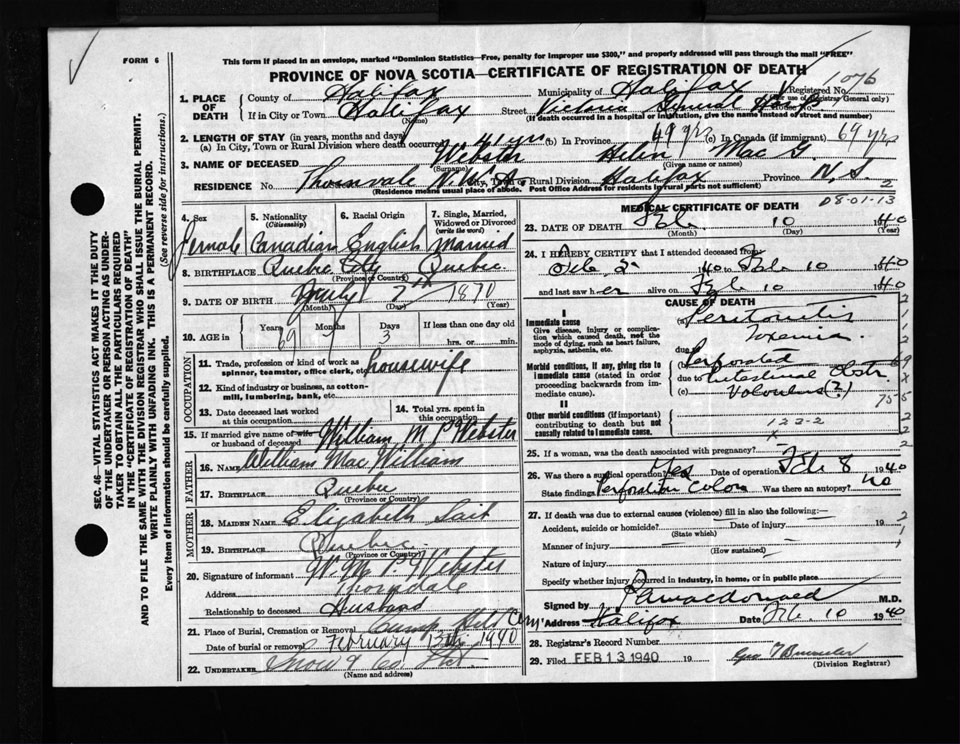 FORM 6
This form if placed in an envelope, marked "Dominion Statistics—Free, penalty for improper use $300," and properly addressed will pass through the mail "FREE"
PROVINCE OF NOVA SCOTIA—CERTIFICATE OF REGISTRATION OF DEATH
1076
1. PLACE OF DEATH
County of Halifax Municipality of Halifax Registered No. (For use of Registrar General only)
If in City or Town Halifax (Name) Street Victoria General Hosp. House No.
(If death occurred in a hospital or institution, give the name instead of street and number)
2. LENGTH OF STAY (in years, months and days)
(a) In City, Town or Rural Division where death occurred 41 yrs (b) In Province 49 yrs (c) In Canada (if immigrant) 69 yrs
3. NAME OF DECEASED Webster Helen Mac G.
(Surname) (Given name or names)
RESIDENCE No. Thornvale N.W.A. City, Town or Rural Division Halifax Province N.S.
(Residence means usual place of abode. Post Office Address for residents in rural parts not sufficient)
2
D8-01-13
4. Sex 5. Nationality (Citizenship) 6. Racial Origin 7. Single, Married, Widowed or Divorced (write the word)
Female Canadian English Married
8. BIRTHPLACE Quebec City Quebec
(Province or Country)
9. DATE OF BIRTH July 7th 1870
(Month) (Day) (Year)
10. AGE in Years Months Days If less than one day old
69 7 3 hrs. or min.
OCCUPATION
11. Trade, profession or kind of work as spinner, teamster, office clerk, etc. housewife
12. Kind of industry or business, as cotton-mill, lumbering, bank, etc.
13. Date deceased last worked at this occupation
14. Total yrs. spent in this occupation
15. If married give name of wife or husband of deceased William M P Webster
FATHER
16. NAME William MacWilliam
17. BIRTHPLACE Quebec
MOTHER
18. MAIDEN NAME Elizabeth Lait
19. BIRTHPLACE Quebec
(Province or Country)
20. Signature of informant W. M. P. Webster
Address Thorndale
Relationship to deceased Husband
21. Place of Burial, Cremation or Removal Camp Hill Cem.
Date of burial or removal February 13th 1940
22. UNDERTAKER Snow & Co. Ltd.
(Name and address)
MEDICAL CERTIFICATE OF DEATH
23. DATE OF DEATH Feb. 10 1940
(Month) (Day) (Year)
24. I HEREBY CERTIFY that I attended deceased from
Feb 2 1940 to Feb 10 1940
and last saw her alive on Feb 10 1940
CAUSE OF DEATH
I
Immediate cause
Give disease, injury or complication which caused death, not the mode of dying, such as heart failure, asphyxia, asthenia, etc.
(a) Peritonitis
Toxemia
due to
Morbid conditions, if any, giving rise to immediate cause (stated in order proceeding backwards from immediate cause).
(b) Perforated
due to Intestinal Obstr.
(c) Volvulus (?)
II
Other morbid conditions (if important) contributing to death but not causally related to immediate cause.
122-2
x
25. If a woman, was the death associated with pregnancy?
26. Was there a surgical operation? Yes Date of operation Feb 8 1940
State findings Perforation Colon Was there an autopsy? no
27. If death was due to external causes (violence) fill in also the following:—
Accident, suicide or homicide? Date of injury 19
(State which)
Manner of injury
(How sustained)
Nature of injury
Specify whether injury occurred in industry, in home, or in public place
Signed by Macdonald M.D.
Address Halifax Date Feb. 10 1940
28. Registrar's Record Number
29. Filed FEB 13 1940 19
(Division Registrar)
SEC. 46—VITAL STATISTICS ACT MAKES IT THE DUTY
OF THE UNDERTAKER OR PERSON ACTING AS UNDER-
TAKER TO OBTAIN ALL THE PARTICULARS REQUIRED
IN THE "CERTIFICATE OF REGISTRATION OF DEATH"
AND TO FILE THE SAME WITH THE DIVISION REGISTRAR WHO SHALL ISSUE THE BURIAL PERMIT.
WRITE PLAINLY WITH UNFADING INK. THIS IS A PERMANENT RECORD.
Every item of information should be carefully supplied. (See reverse side for instructions.)